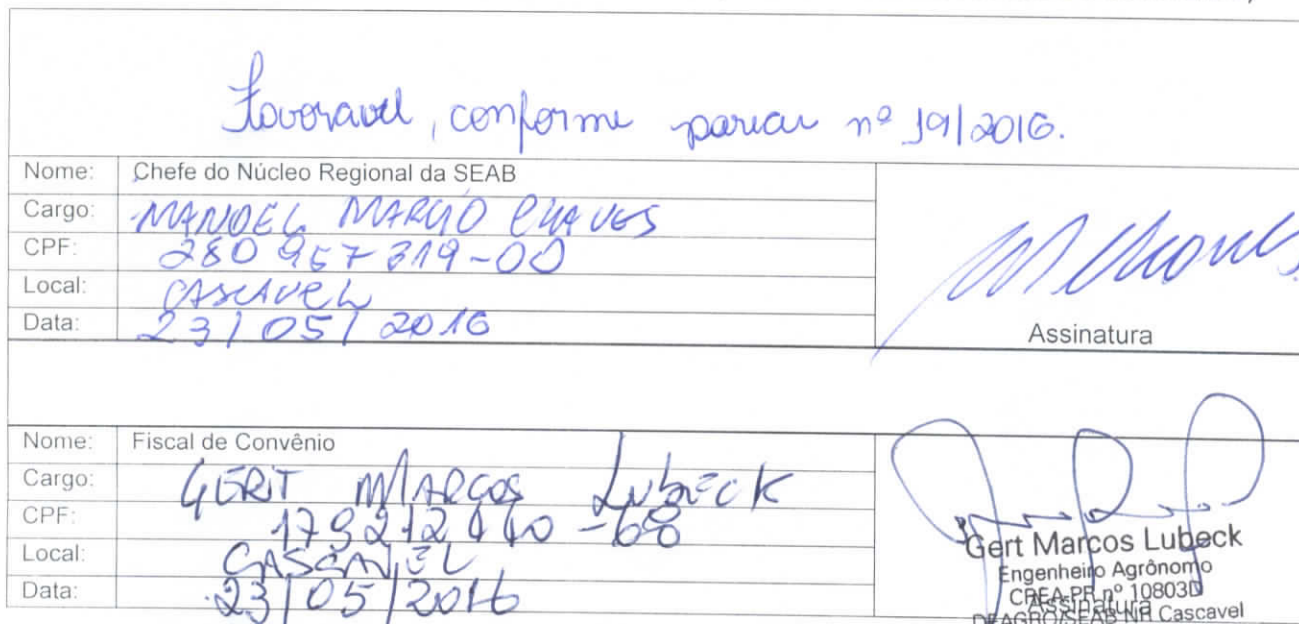 Favoravel, conforme parecer nº 19/2016.
Nome: Chefe do Núcleo Regional da SEAB
Cargo: MANOEL MARCIO CHAVES
CPF: 280 957 319-00
Local: CASCAVEL
Data: 23/05/2016
Assinatura
Nome: Fiscal de Convênio
Cargo: GERT MARCOS LUBECK
CPF: 179212440-68
Local: CASCAVEL
Data: 23/05/2016
Gert Marcos Lubeck
Engenheiro Agrônomo
CREA-PR nº 10803D
Assinatura
DEAGRO/SEAB NR Cascavel